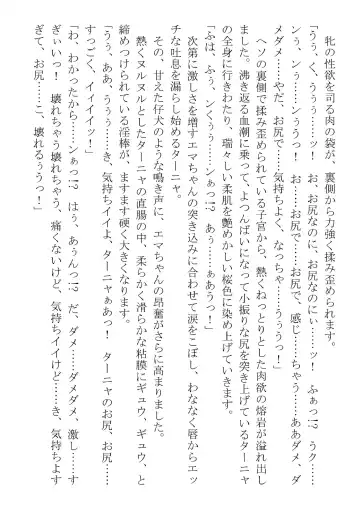 牝の性欲を司る肉の袋が、裏側から力強く揉み歪められます。
「うぅ、く、うぅぅ……ッ！　お、お尻なのに、お尻なのにぃ……ッ！　ふぁっ!?　うク……
ンぅ、ンぅ……ンぅぅぅっ！　お……お尻で……お尻で、感じ……ちゃう……ああダメ、ダ
ダメダメ……やだ、お尻で……気持ちよく、なっちゃ……うぅうっ！」
ヘソの裏側で揉み歪められている子宮から、熱くねっとりとした肉欲の熔岩が溢れ出し
ます。沸き返る血潮に乗って、よつんばいになって小振りな尻を突き上げているターニャ
の全身に行きわたり、瑞々しい柔肌を艶めかしい桜色に染め上げていきます。
「ふは、ふぅ、ンくぅ……ンぁっ!?　あ……ぁあうっ！」
次第に激しさを増すエマちゃんの突き込みに合わせて涙をこぼし、わななく唇からエッ
チな吐息を漏らし始めるターニャ。
その、甘えた仔犬のような鳴き声に、エマちゃんの昂奮がさらに高まりました。
熱くヌルヌルとしたターニャの直腸の中、柔らかく滑らかな粘膜にギュウ、ギュウ、と
締めつけられている淫棒が、ますます硬く大きくなります。
「うぅ、ああ、うぅぅ……き、気持ちイイよ、ターニャぁあっ！　ターニャのお尻、お尻、
すっごく、イィイイッ！」
「わ、わかったから……ンぁっ!?　はぅ、あぅんっ!?　だ、ダメ……ダメダメ、激し……す
ぎぃいっ！　壊れちゃう壊れちゃう、痛くないけど、気持ちイイけど……き、気持ちよす
ぎて、お尻……こ、壊れるぅうっ！」